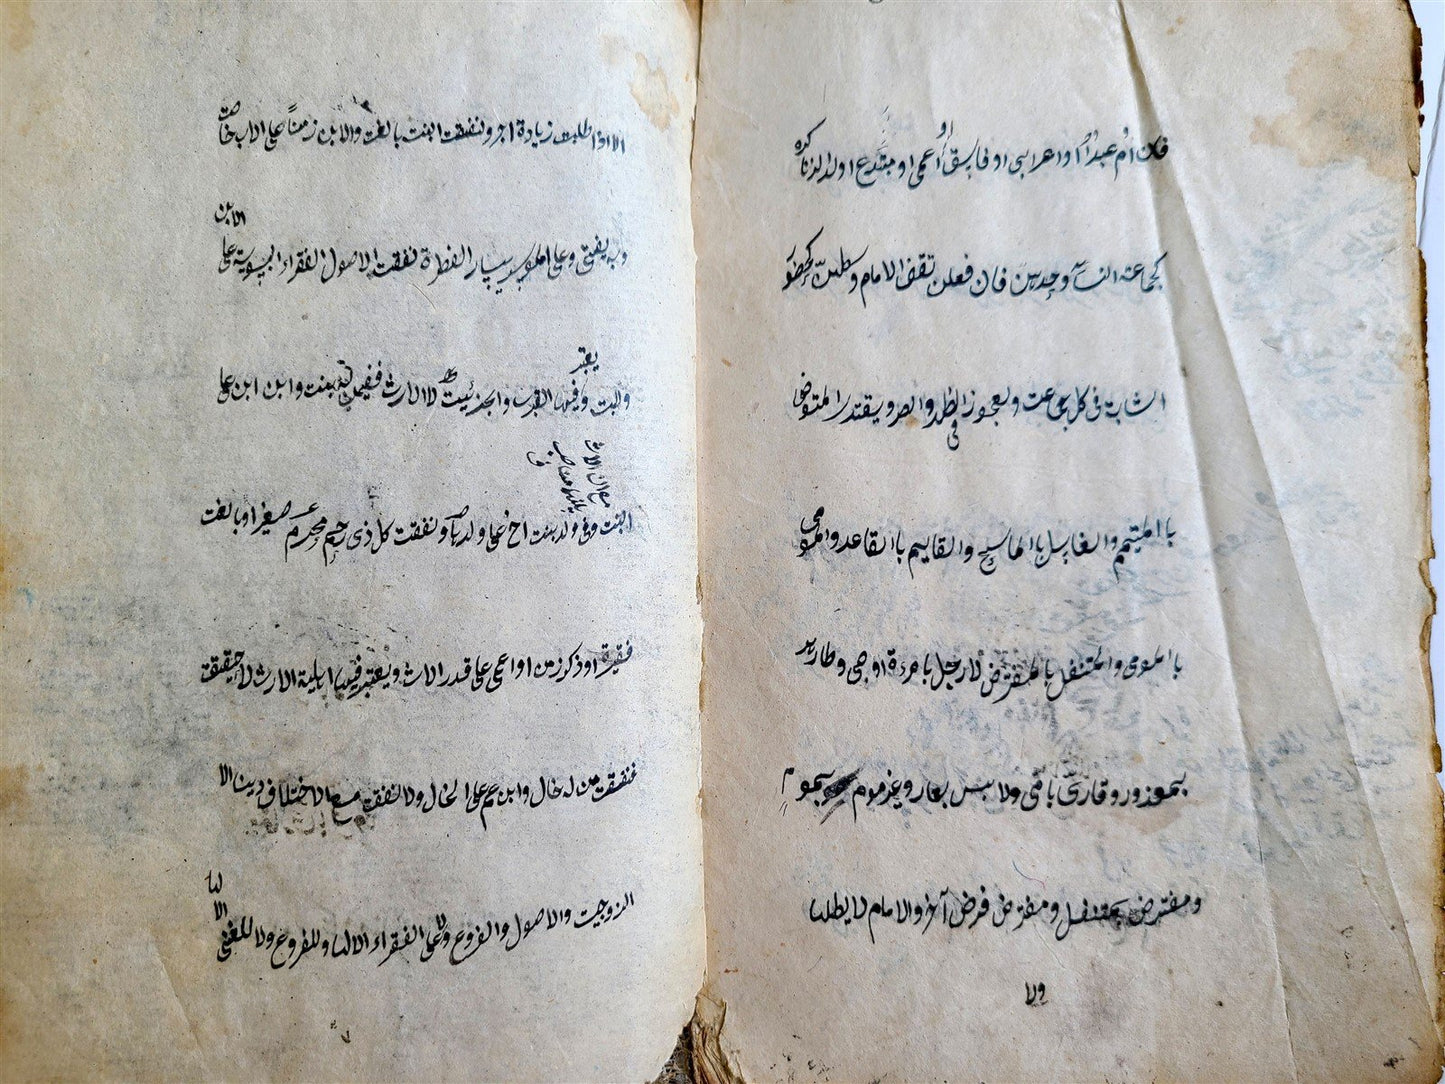 فان ام عبد او اعرابي او فاسق او اعمى او مبتدع او ولد الزنا كره
كجماعة النساء وحدهن فان فعلن تقف الامام وسطهن كحضور
الشابة في كل جماعة والعجوز في الظهر والعصر ويقتدى المتوضى
باالمتيمم والغاسل باالماسح والقايم باالقاعد والمومى
باالمومى والمتنفل بالمفترض لا رجل بامرءة او صبى وطاهر
بمعذور وقارى بامى ولابس بعار وغير موم بموم
ومفترض بمتنفل ومفترض فرض آخر والامام لا يطلها
ولا
الا اذا طلبت زيادة اجر ونفقة البنت بالغة والابن زمناً على الاب خاصة
وبه يفتى وعلى الموسر يسار الفطرة نفقة الاصول الفقراء بالسوية على الابن
والبنت ويعتبر فيها القرب والجزئية لا الارث ففيمن له بنت وابن ابن على
مع ان الارث
بينهما نصفان
البنت وفي ولد بنت اخ على ولدها ونفقة كل ذى رحم محرم صغير او بالغة
فقيرة او ذكر زمن او اعمى على قدر الارث ويعتبر فيها اهلية الارث لا حقيقته
فنفقة من له خال وابن عم على الخال ولا نفقة مع الاختلاف دينا الا
الزوجية والاصول والفروع ولا على الفقراء الا لها وللفروع ولا للغنى الا لها